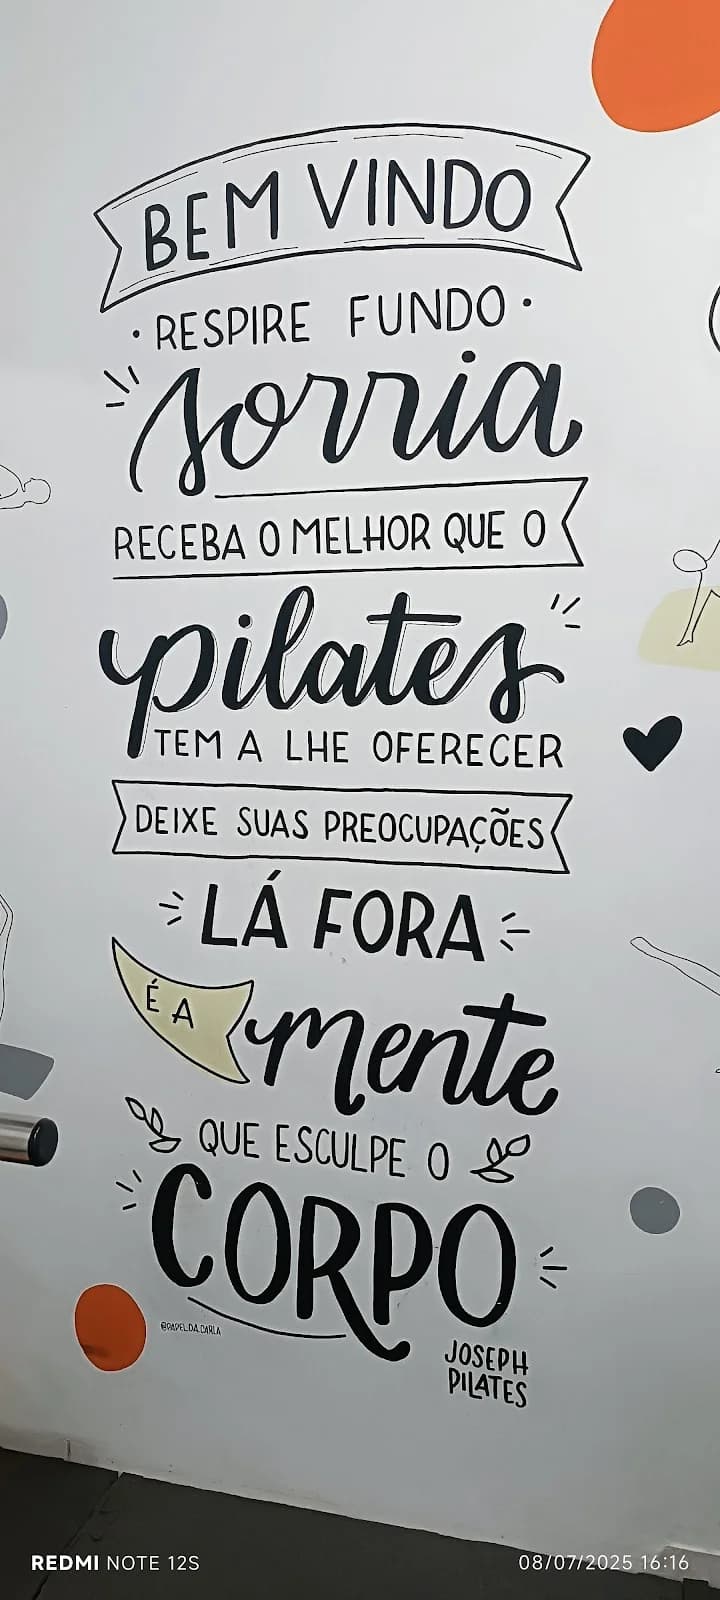 BEM VINDO
• RESPIRE FUNDO •
sorria
RECEBA O MELHOR QUE O
pilates
TEM A LHE OFERECER
DEIXE SUAS PREOCUPAÇÕES
LÁ FORA
É A mente
QUE ESCULPE O
CORPO
@PAPEL.DA.CARLA
JOSEPH
PILATES
REDMI NOTE 12S
08/07/2025 16:16